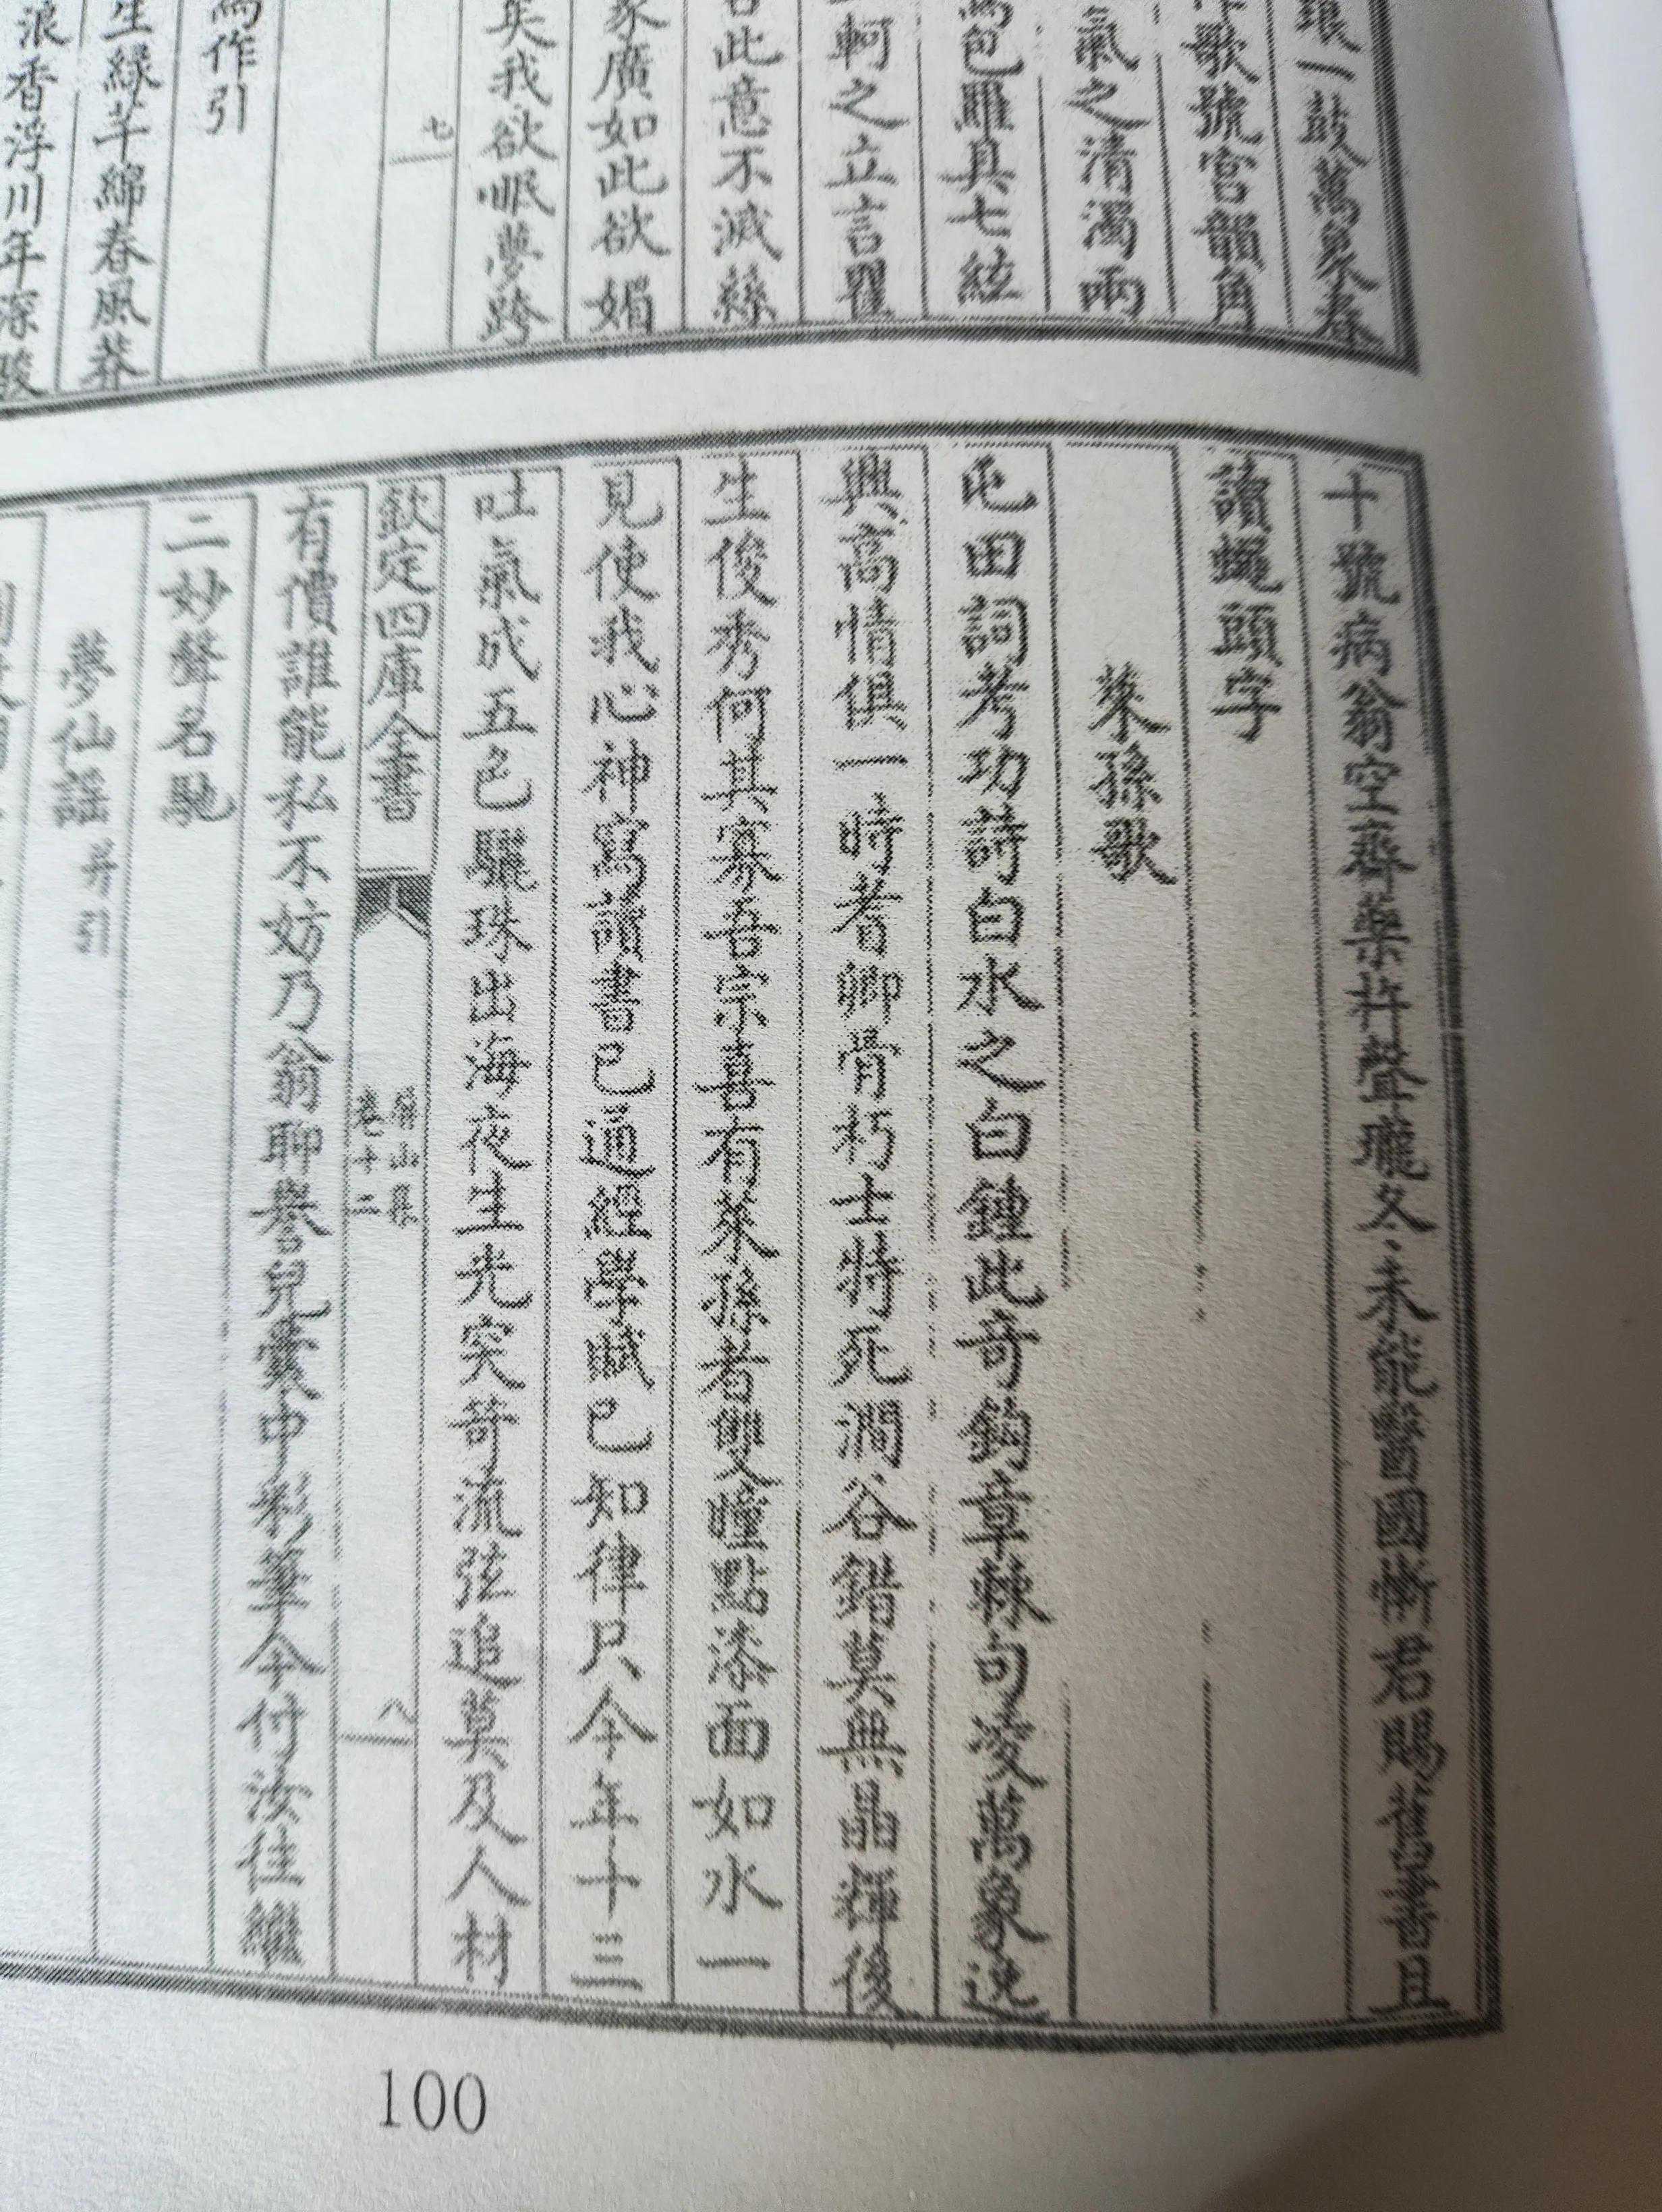 琅一鼓萬象春
作歌號宮韻角
氣之清濁兩
為包羅具七絃
軻之立言瞿
此意不減絲
家廣如此欲媚
矣我欲眠夢跨
七
為作引
生緑芊綿春風莽
浪香浮川年深發
十號病翁空齋梁柱聲瓏冬未能醫國術君賜舊書且
讀蠅頭字
萊孫歌
屯田詞考功詩白水之白鍾此奇鈎章棘句凌萬象逸
興高情俱一時耆卿骨朽士將死澗谷錯莫無晶輝後
生俊秀何其寡吾宗喜有萊孫者雙瞳點漆面如水一
見使我心神寫讀書已通經學賦已知律只今年十三
吐氣成五色驪珠出海夜生光突竒流弦追莫及人材
欽定四庫全書
屏山集
卷十二
八
有價誰能私不妨乃翁聊譽兒囊中彩筆今付汝佳繼
二妙聲名馳
夢仙謡 并引
100